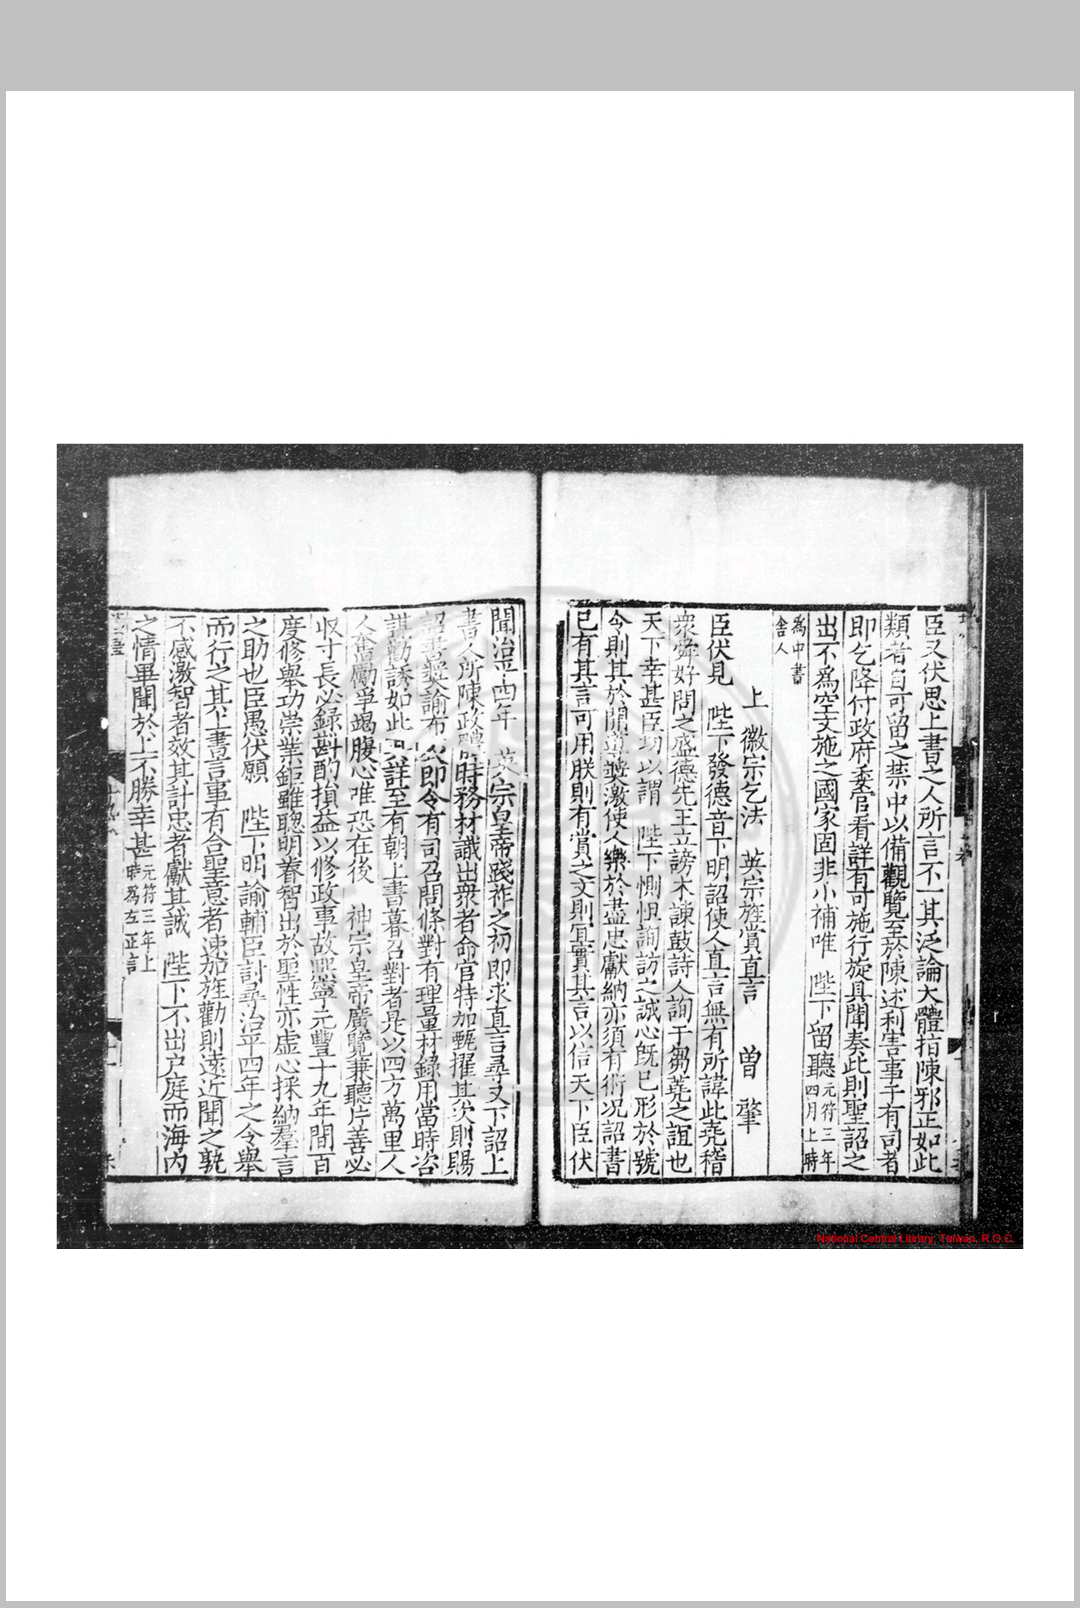 臣又伏思上書之人所言不一其泛論大體指陳邪正如此
類者自可留之禁中以備觀覽至於陳述利害事子有司者
即乞降付政府委官看詳有可施行旋具聞奏此則聖詔之
出不為空文施之國家固非小補唯 陛下留聽元符三年四月上時
為中書舍人
上 徽宗乞法 英宗旌賞直言 曾肇
臣伏見 陛下發德音下明詔使人直言無有所諱此堯稽
眾舜好問之盛德先王立謗木諫鼓詩人詢于芻蕘之誼也
天下幸甚臣切以謂 陛下惻怛詢訪之誠心既已形於號
令則其於開導奬激使人樂於盡忠獻納亦須有術况詔書
已有其言可用朕則有賞之文則宜實其言以信天下臣伏
聞治平四年 英宗皇帝踐祚之初即求直言尋又下詔上
書人所陳政體時務材識出衆者命官特加甄擢其次則賜
詔書奬諭布 次即令有司召問條對有理量材録用當時咨
諏勸誘如此 詳至有朝上書暮召對者是以四方萬里人
人奮勵爭竭腹心唯恐在後 神宗皇帝廣覽兼聽片善必
収寸長必録斟酌損益以修政事故熙寧元豐十九年間百
度修舉功崇業鉅雖聰明睿智出於聖性亦虛心採納羣言
之助也臣愚伏願 陛下明諭輔臣討尋治平四年之令舉
而行之其上書言事有合聖意者速加旌勸則遠近聞之孰
不感激智者效其計忠者獻其誠 陛下不出户庭而海内
之情畢聞於上不勝幸甚元符三年上時為左正言
National Central Library, Taiwan, R.O.C.